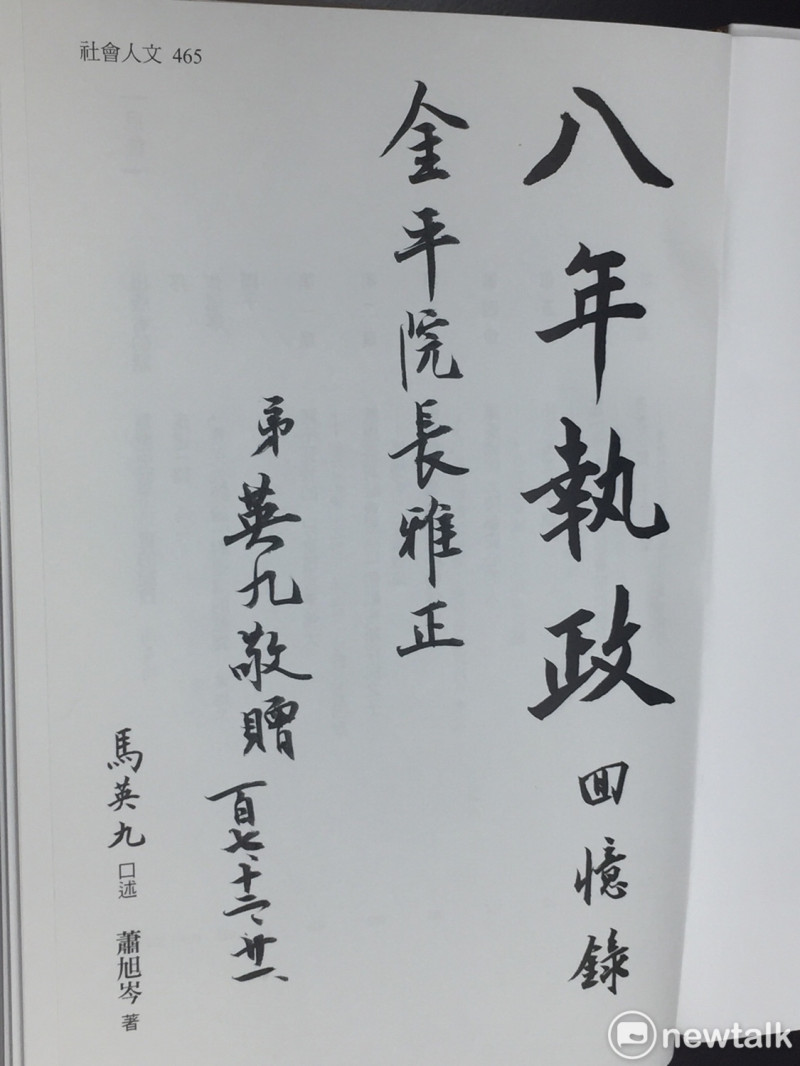 社會人文 465
八年執政回憶錄
金平院長雅正
弟英九敬贈
百七、十二、廿一
馬英九 口述 蕭旭岑 著
newtalk